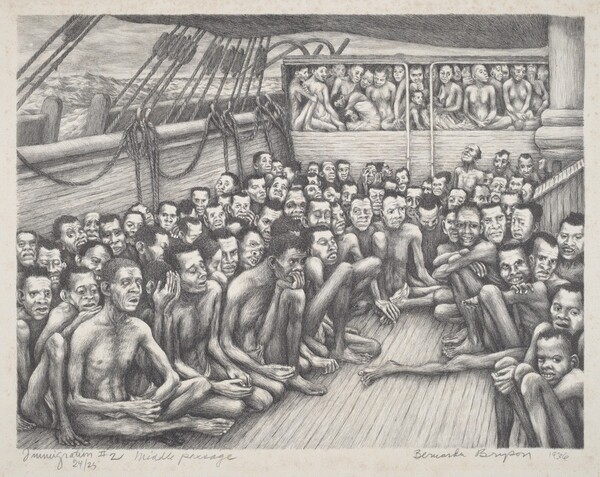 Immigration #2 Middle passage
24/25
Bernarda Bryson 1934